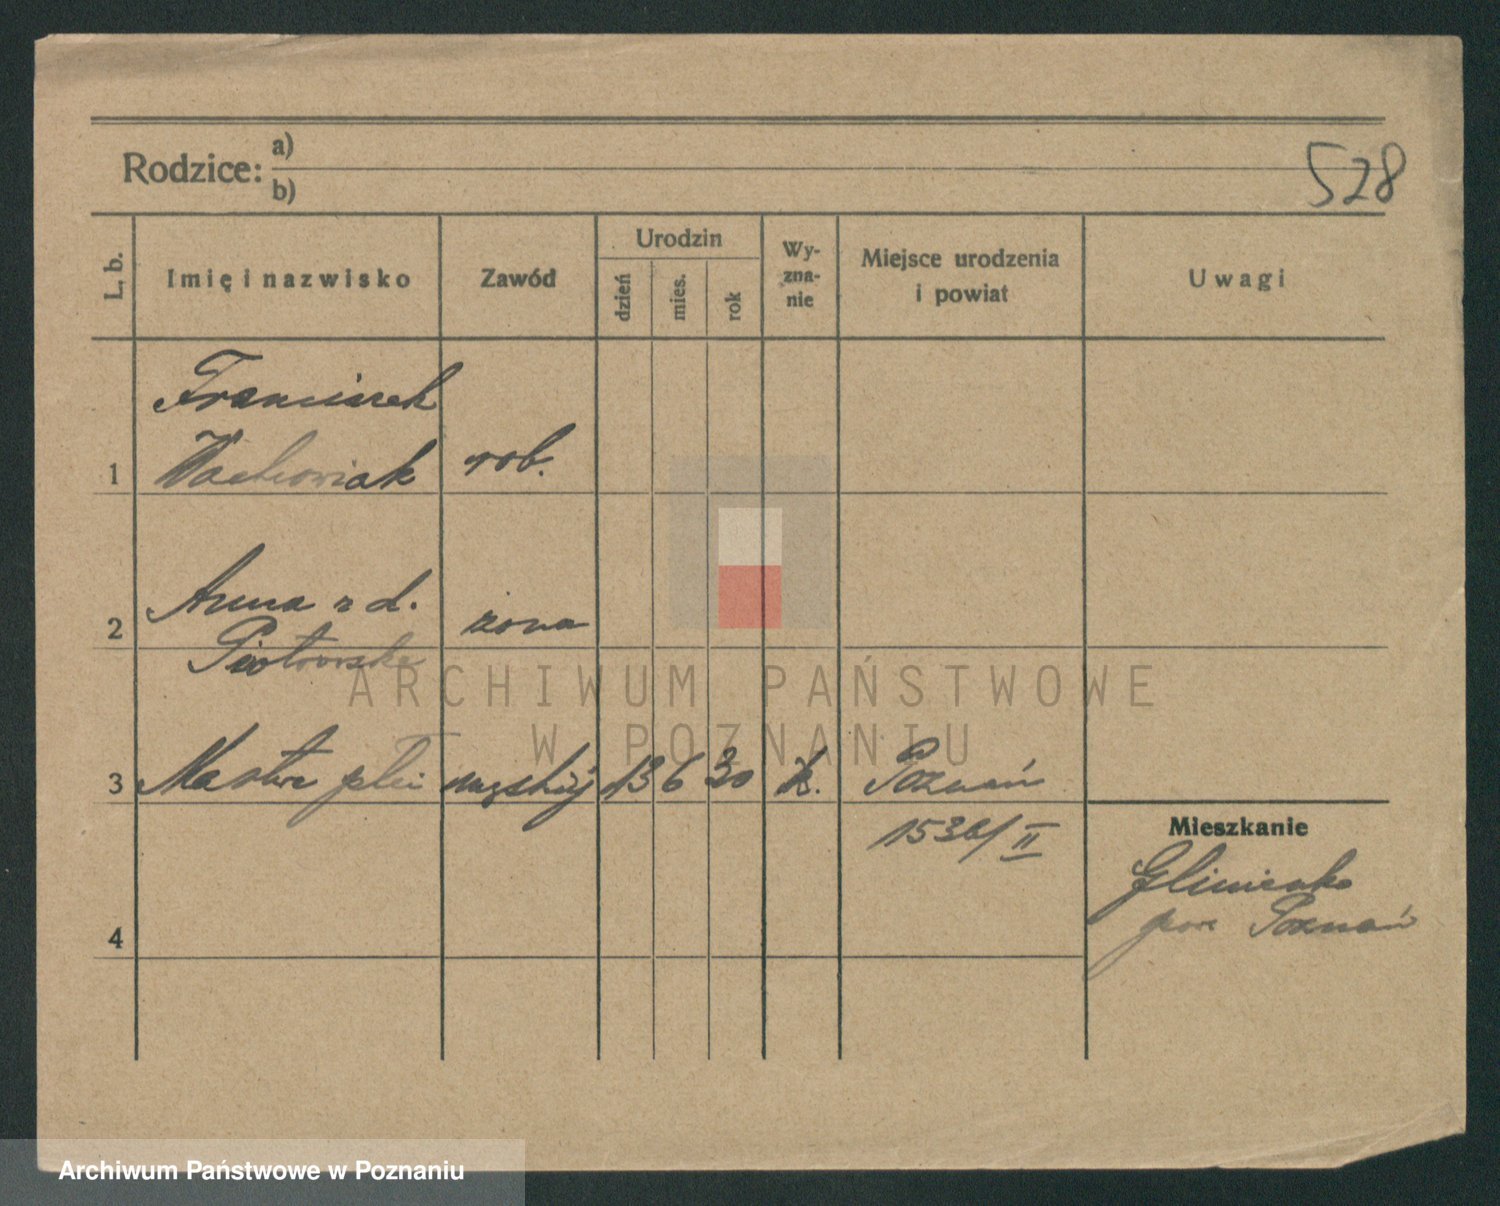 Rodzice: a)
b)
528
L. b.
Imię i nazwisko
Zawód
Urodzin
dzień
mies.
rok
Wy-
zna-
nie
Miejsce urodzenia
i powiat
Uwagi
Franciszek
1 Wachowiak rob.
2 Anna z d. żona
Piotrowska
3 Martwe płci męskiej 13 6 30 k. Poznań
1536/II
4
Mieszkanie
Glinienko
pow Poznań
ARCHIWUM PAŃSTWOWE
W POZNANIU
Archiwum Państwowe w Poznaniu